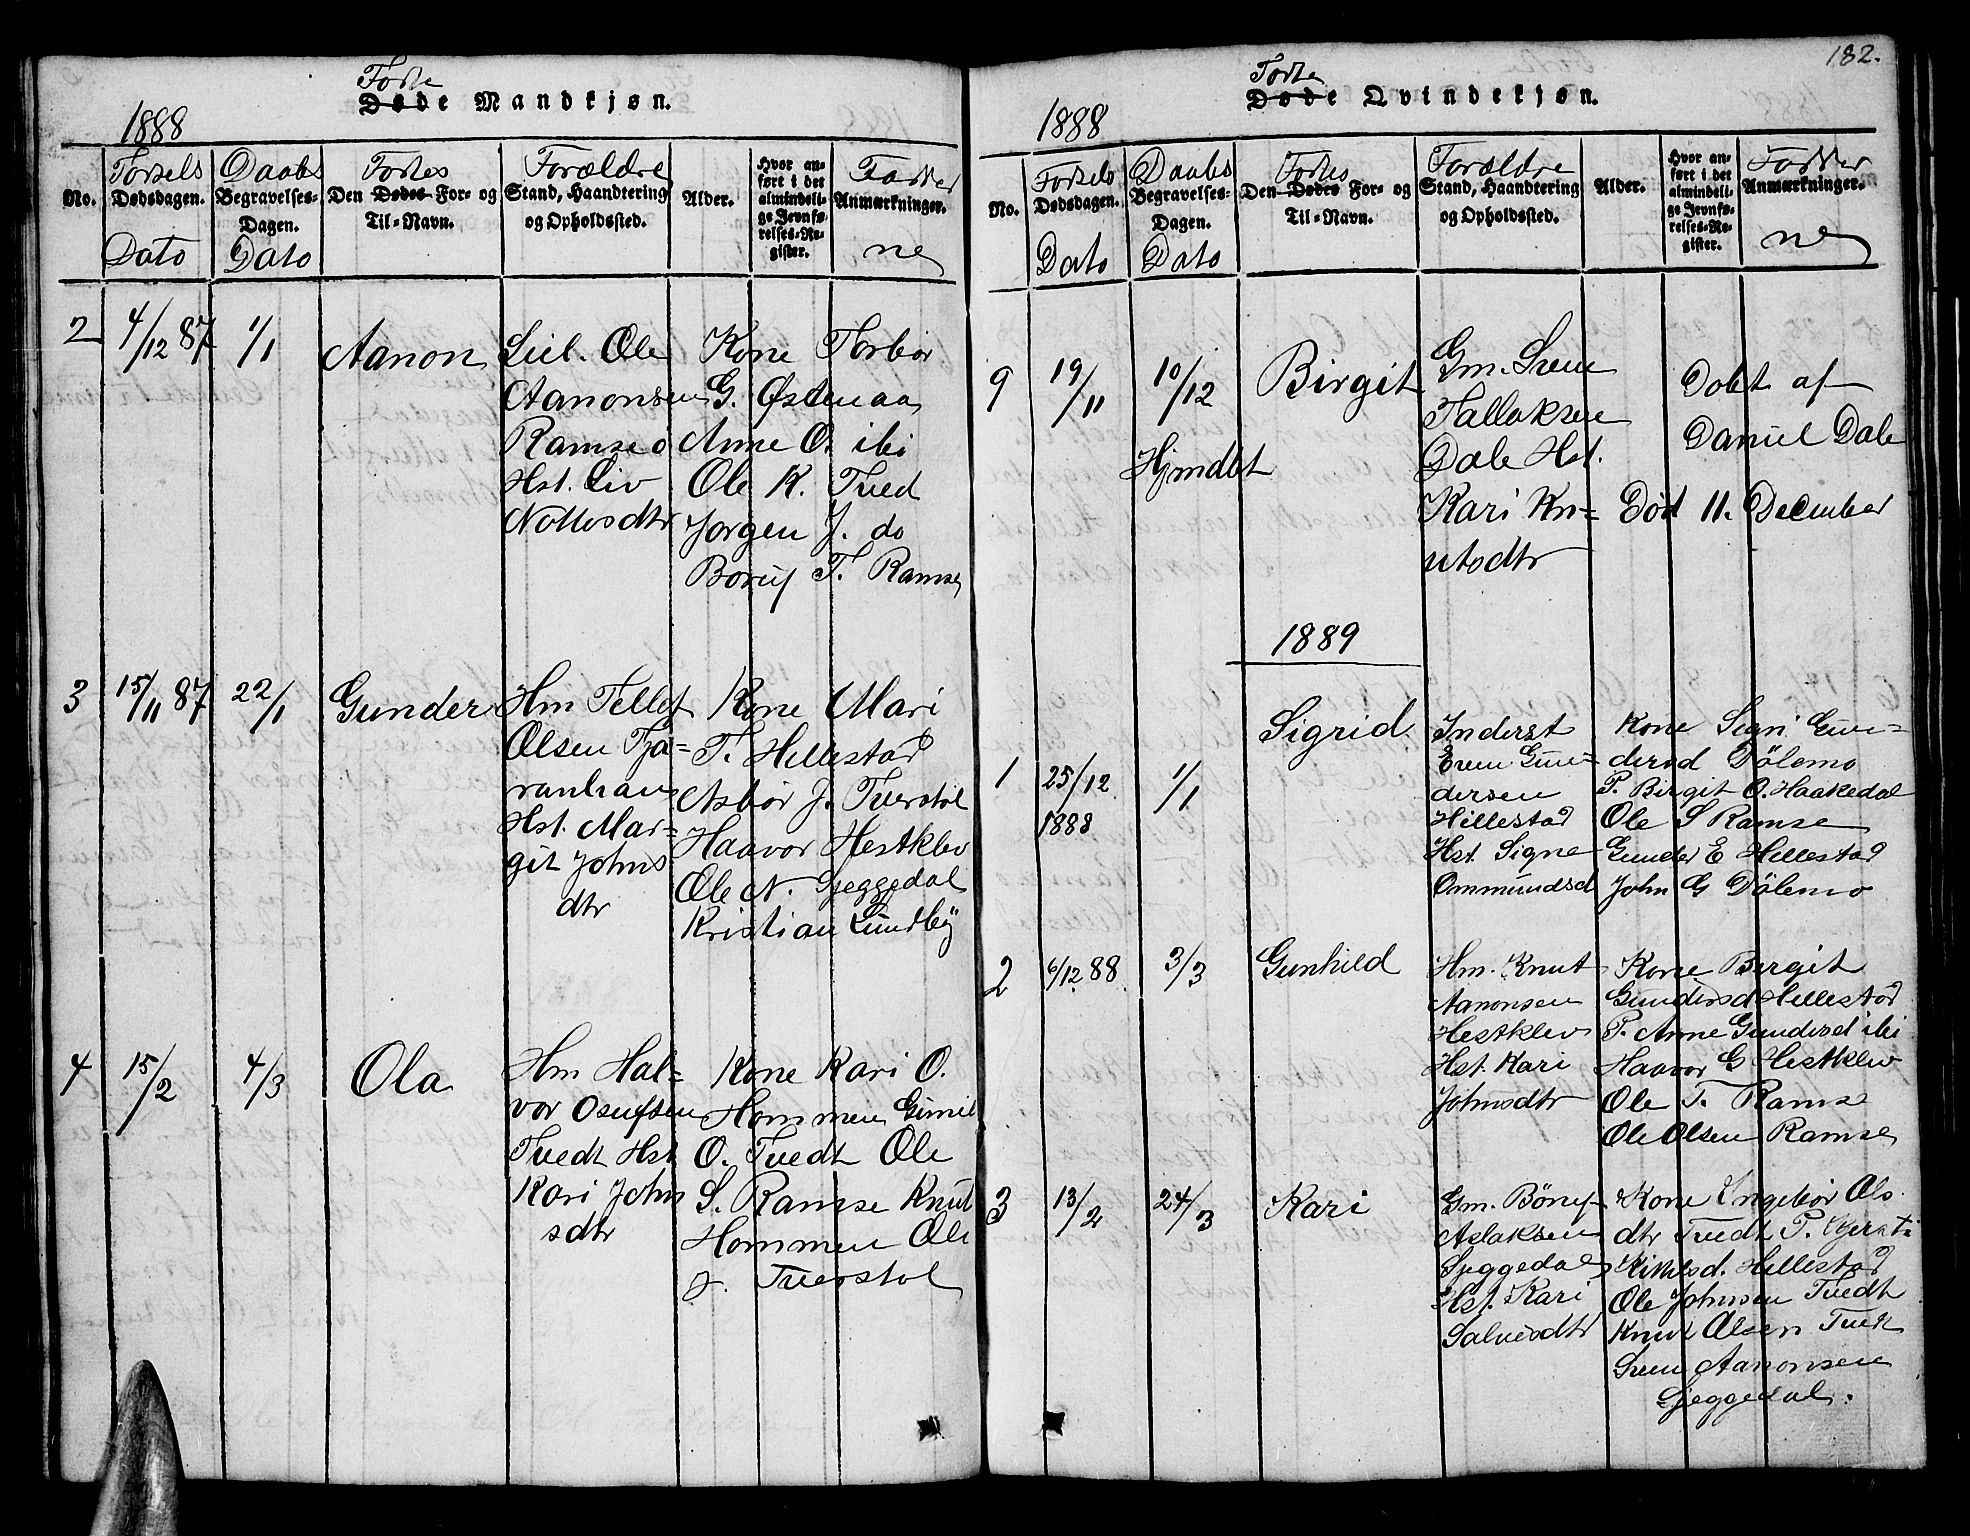 182.
Fødte
Døde Mandkjøn.
1888
No.
Fødsels
Dødsdagen.
Dato
Daabs
Begravelses-
Dagen.
Dato
Fødtes
Den Dødes For- og
Til-Navn.
Forældre
Stand, Haandtering
og Opholdssted.
Alder.
Hvor an-
ført i det
almindeli-
ge Jevnfø-
relses-Re-
gister.
Fadder
Anmærkninger.
ne
2
4/12 87
1/1
Aanon
Sel. Ole
Aanonsen
Ramse
Hst. Liv
dtr
Kone Torbor
G. Østenaa
Anne O. ibi
Ole K. Tved
Jorgen J. do
T. Ramse
3
15/11 87
22/1
Gunder
Hm Tellef
Olsen Tja-
ranhau
Hst. Mar-
git Johns
dtr
Kone Mari
T. Hillestad
Asbør J. Tverstøl
Haavor Hestklev
Ole N. Gjeggedal
Kristian Lundbÿ
4
15/2
4/3
Ola
Hm Hal-
vor Osufsen
Tvedt Hst
Kari John
sdtr
Kone Kari O.
Hommen Gunil
O. Tvedt Ole
S. Ramse Knut
Hommen Ole
J. Tverstøl
Fødte
Døde Qvindekjøn.
1888
No.
Fødsels
Dødsdagen.
Dato
Daabs
Begravelses-
Dagen.
Dato
Fødtes
Den Dødes For- og
Til-Navn.
Forældre
Stand, Haandtering
og Opholdssted.
Alder.
Hvor an-
ført i det
almindeli-
ge Jevnfø-
relses-Re-
gister.
Fadder
Anmærkninger.
ne
9
19/11
10/12
Hjmdbt
Birgit
Gm. Sven
Tallaksen
Dale Hst.
Kari Kn-
utsdtr
Døbt af
Daniel Dale
Død 11. December
1889
1
25/12
1888
1/1
Sigrid
Inderst
Even Gun-
dersen
Hillestad
Hst. Signe
Ommundsd
Kone Sigri Gun-
dersd Dölemo
P. Birgit O. Haakedal
Ole S Ramse
Gunder E Hillestad
John G Dölemo
2
6/12 88
3/3
Gunhild
Hm. Knut
Aanonsen
Hestklev
Hst. Kari
Johnsdtr
Kone Birgit
Gundersd Hillestad
P. Anne Gundersd ibi
Haavor G Hestklev
Ole T. Ramse
Ole Olsen Ramse
3
13/2
24/3
Kari
Gm. Bönuf
Aslaksen
Gjeggedal
Hst. Kari
Salvesdtr
Kone Ingebör Ols
dtr Tvedt P.
Kittilsd. Hillestad
Ole Johnsen Tvedt
Knut Olsen Tvedt
Sven Aanonsen
Gjeggedal.